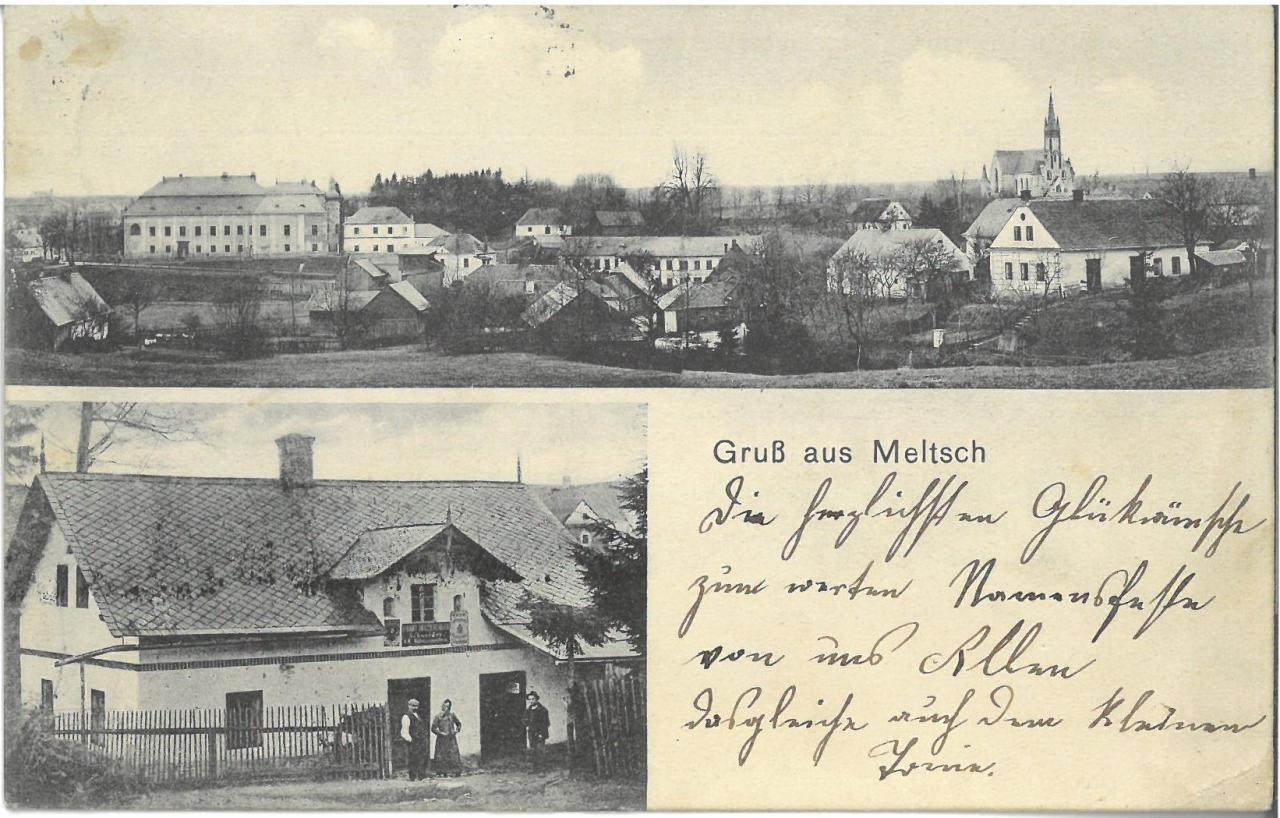 Gruß aus Meltsch
Die herzlichsten Glükwünsche
zum werten Namensfeste
von uns Allen
dasgleiche auch dem kleinen